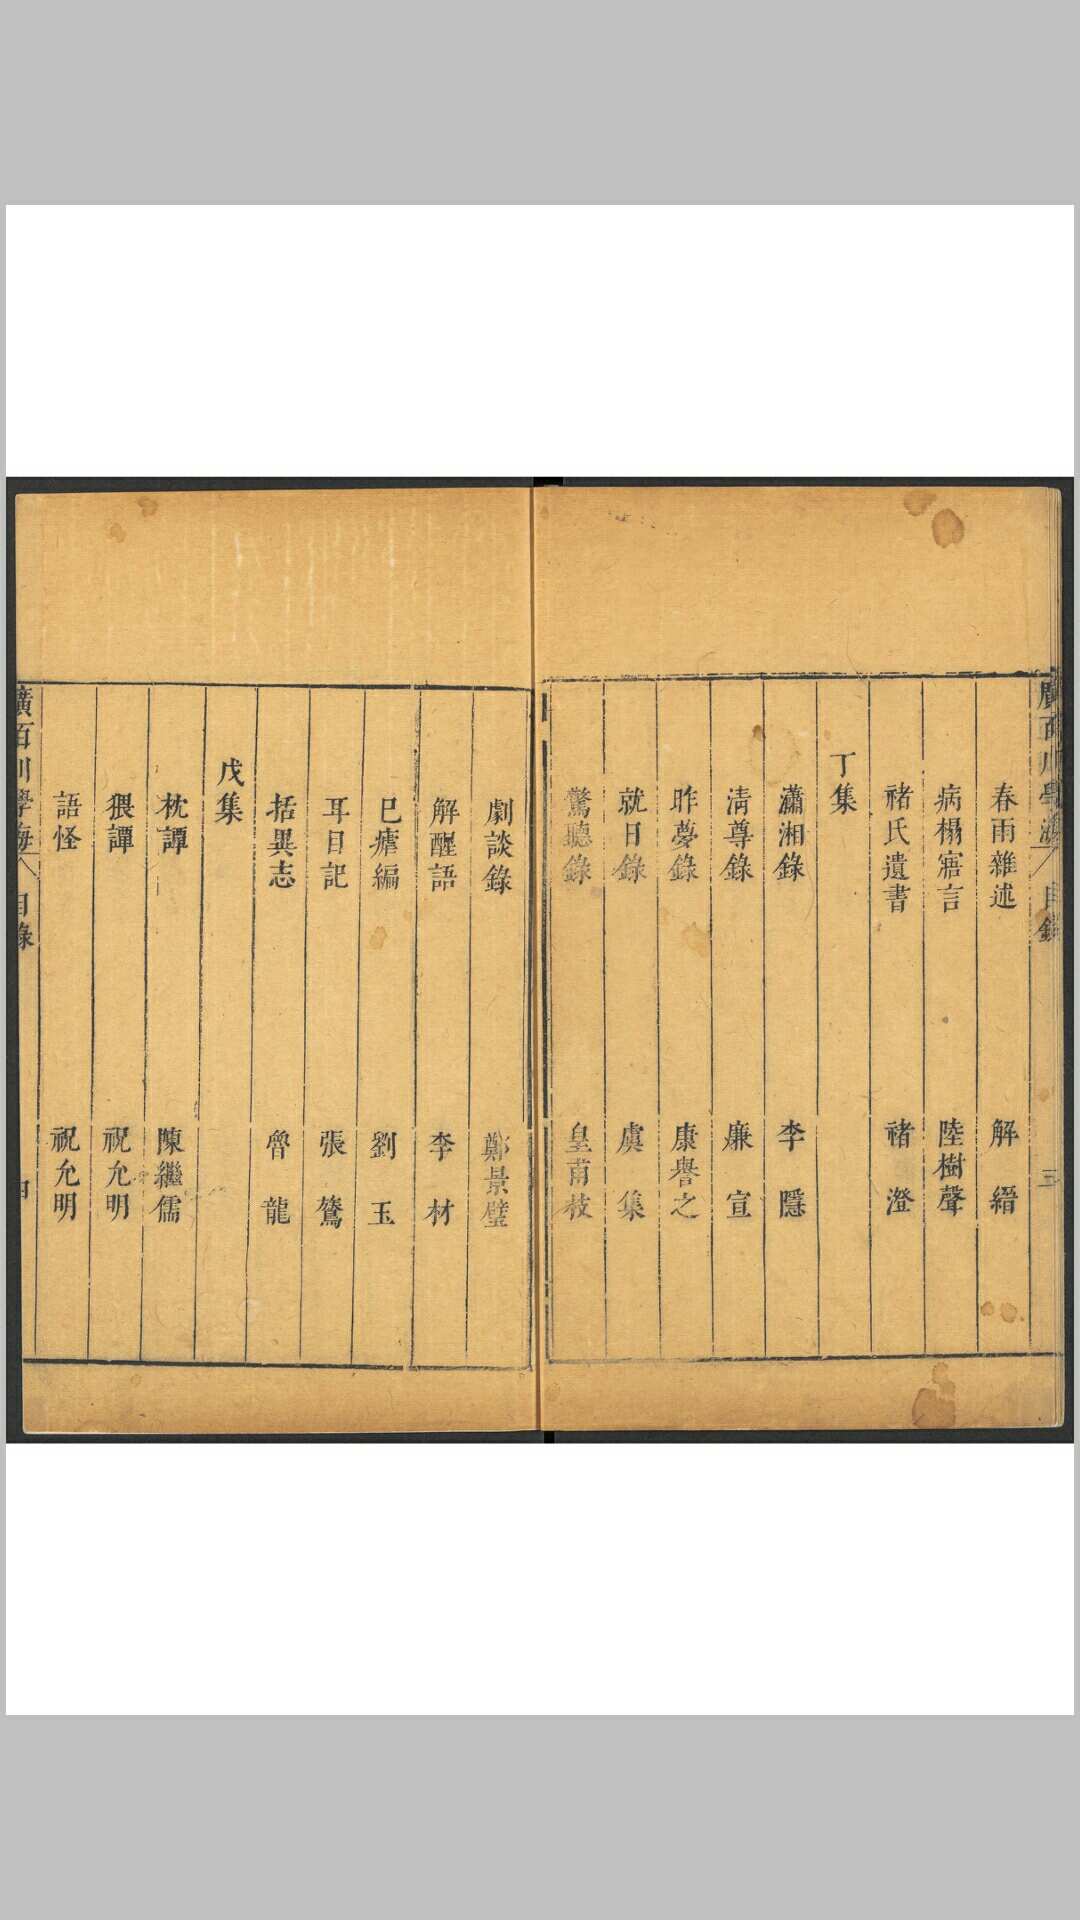 廣百川學海 目錄 三
春雨雜述 解縉
病榻寤言 陸樹聲
褚氏遺書 褚澄
丁集
瀟湘錄 李隱
清尊錄 廉宣
昨夢錄 康譽之
就日錄 虞集
驚聽錄 皇甫枚
劇談錄 鄭景璧
解醒語 李材
巳瘧編 劉玉
耳目記 張鷟
括異志 魯龍
戊集
枕譚 陳繼儒
猥譚 祝允明
語怪 祝允明
廣百川學海 目錄 四